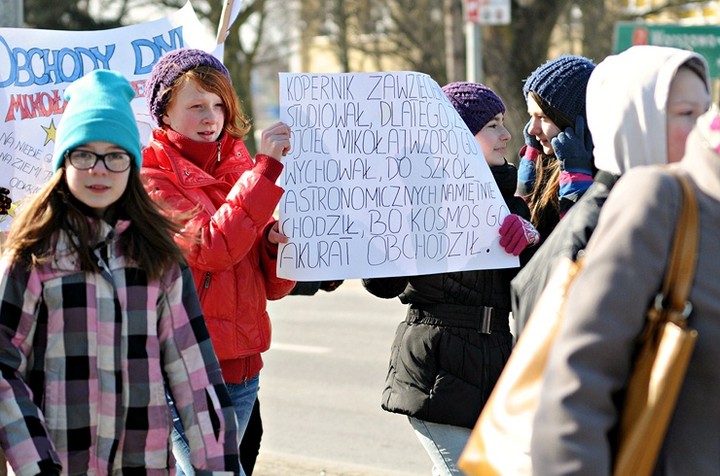 OBCHODY DNI
MIKOŁ
NA NIEBIE
NA ZIEMI
KOPERNIK ZAWZE
STUDIOWAŁ, DLATEGO
OJCIEC MIKOŁAJ WZOROGO
WYCHOWAŁ, DO SZKÓŁ
ASTRONOMICZNYCH NAMIĘTNIE
CHODZIŁ, BO KOSMOS GO
AKURAT OBCHODZIŁ.